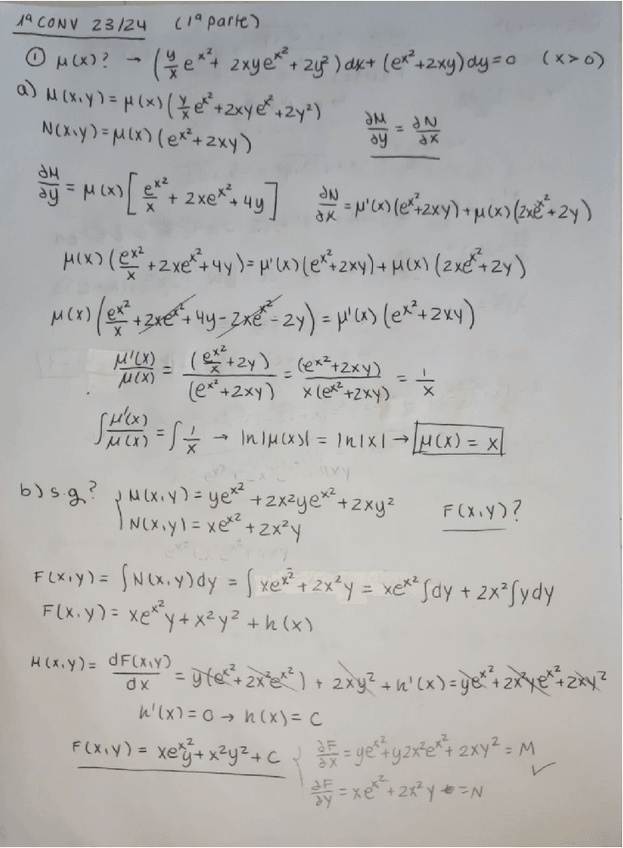 1ª CONV 23/24 (1ª parte)
① μ(x)? → (y/x e^x² + 2xye^x² + 2y²)dx + (e^x² + 2xy)dy = 0 (x>0)
a) M(x,y) = μ(x)(y/x e^x² + 2xye^x² + 2y²)
N(x,y) = μ(x)(e^x² + 2xy)
∂M/∂y = ∂N/∂x
∂M/∂y = μ(x)[e^x²/x + 2xe^x² + 4y] ∂N/∂x = μ'(x)(e^x² + 2xy) + μ(x)(2xe^x² + 2y)
μ(x)(e^x²/x + 2xe^x² + 4y) = μ'(x)(e^x² + 2xy) + μ(x)(2xe^x² + 2y)
μ(x)(e^x²/x + 2xe^x² + 4y - 2xe^x² - 2y) = μ'(x)(e^x² + 2xy)
μ'(x)/μ(x) = (e^x²/x + 2y)/(e^x² + 2xy) = (e^x² + 2xy)/x(e^x² + 2xy) = 1/x
∫μ'(x)/μ(x) = ∫1/x → ln|μ(x)| = ln|x| → μ(x) = x
b) s.g? { M(x,y) = ye^x² + 2x²ye^x² + 2xy²
N(x,y) = xe^x² + 2x²y
F(x,y)?
F(x,y) = ∫N(x,y)dy = ∫xe^x² + 2x²y = xe^x²∫dy + 2x²∫ydy
F(x,y) = xe^x²y + x²y² + h(x)
M(x,y) = dF(x,y)/dx = y(e^x² + 2x²e^x²) + 2xy² + h'(x) = ye^x² + 2x²ye^x² + 2xy²
h'(x) = 0 → h(x) = C
F(x,y) = xe^x²y + x²y² + C { ∂F/∂x = ye^x² + y2x²e^x² + 2xy² = M ✓
∂F/∂y = xe^x² + 2x²y = N